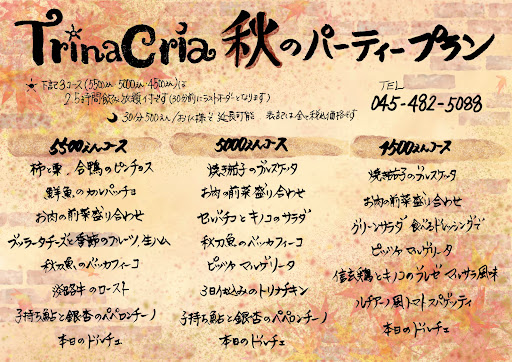 TrinaCria 秋のパーティープラン
下記3コース(5500えん 5000えん 4500えん)は
2.5時間飲み放題付です(30分前にラストオーダーとなります)
30分500えん/お1人様で延長可能 表記は全て税込価格です
TEL
045-482-5088
5500えんコース
柿と栗、合鴨のピンチョス
鮮魚のカルパッチョ
お肉の前菜盛り合わせ
ブッラータチーズと季節のフルーツ、生ハム
秋刀魚のベッカフィーコ
淡路牛のロースト
子持ち鮎と銀杏のペペロンチーノ
本日のドルチェ
5000えんコース
焼き茄子のブルスケッタ
お肉の前菜盛り合わせ
セルバチコとキノコのサラダ
秋刀魚のベッカフィーコ
ピッツァ マルゲリータ
3日仕込みのトリナチキン
子持ち鮎と銀杏のペペロンチーノ
本日のドルチェ
4500えんコース
焼き茄子のブルスケッタ
お肉の前菜盛り合わせ
グリーンサラダ 食べるドレッシングで
ピッツァ マルゲリータ
信玄鶏とキノコのブレゼ マルサラ風味
ルチアーノ風トマトスパゲッティ
本日のドルチェ